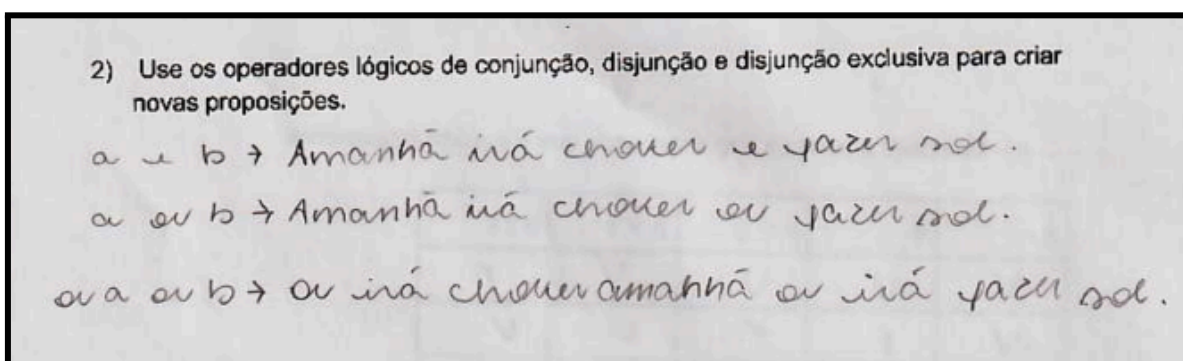 2) Use os operadores lógicos de conjunção, disjunção e disjunção exclusiva para criar
novas proposições.
a e b → Amanhã irá chover e fazer sol.
a ou b → Amanhã irá chover ou fazer sol.
ou a ou b → ou irá chover amanhã ou irá fazer sol.